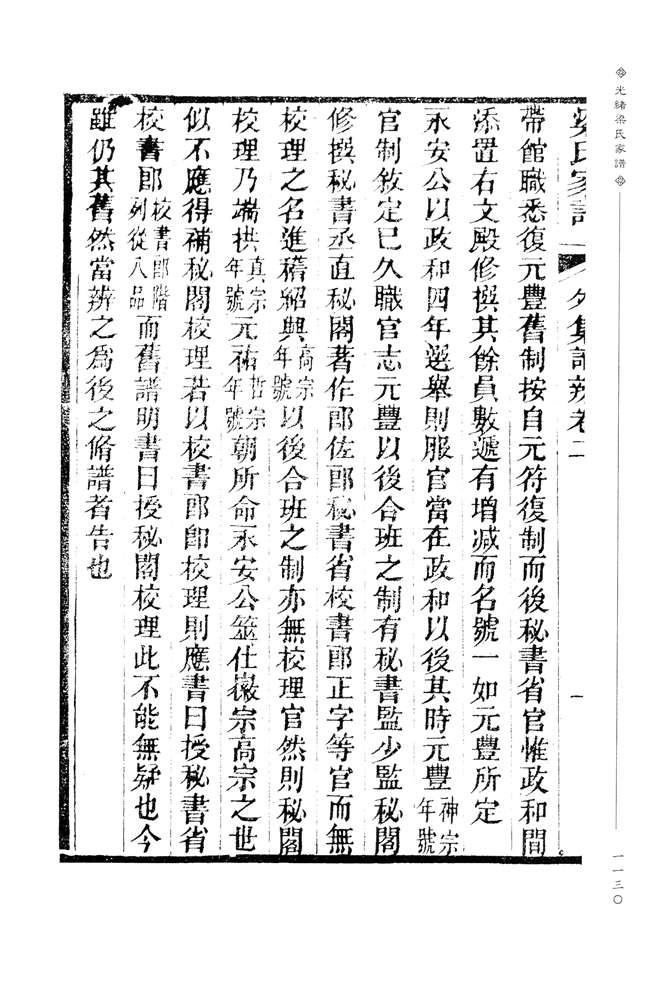 光緒梁氏家譜
一一三〇
梁氏家譜 外集譜辨卷二 一
帶館職悉復元豐舊制按自元符復制而後秘書省官惟政和間
添置右文殿修撰其餘員數遞有增減而名號一如元豐所定
永安公以政和四年選舉則服官當在政和以後其時元豐神宗年號
官制敘定已久職官志元豐以後合班之制有秘書監少監秘閣
修撰秘書丞直秘閣著作郎佐郎秘書省校書郎正字等官而無
校理之名進稽紹興高宗年號以後合班之制亦無校理官然則秘閣
校理乃端拱真宗年號元祐哲宗年號朝所命永安公筮仕徽宗高宗之世
似不應得補秘閣校理若以校書郎卽校理則應書曰授秘書省
校書郎校書郎階列從八品而舊譜明書曰授秘閣校理此不能無疑也今
雖仍其舊然當辨之爲後之脩譜者告也